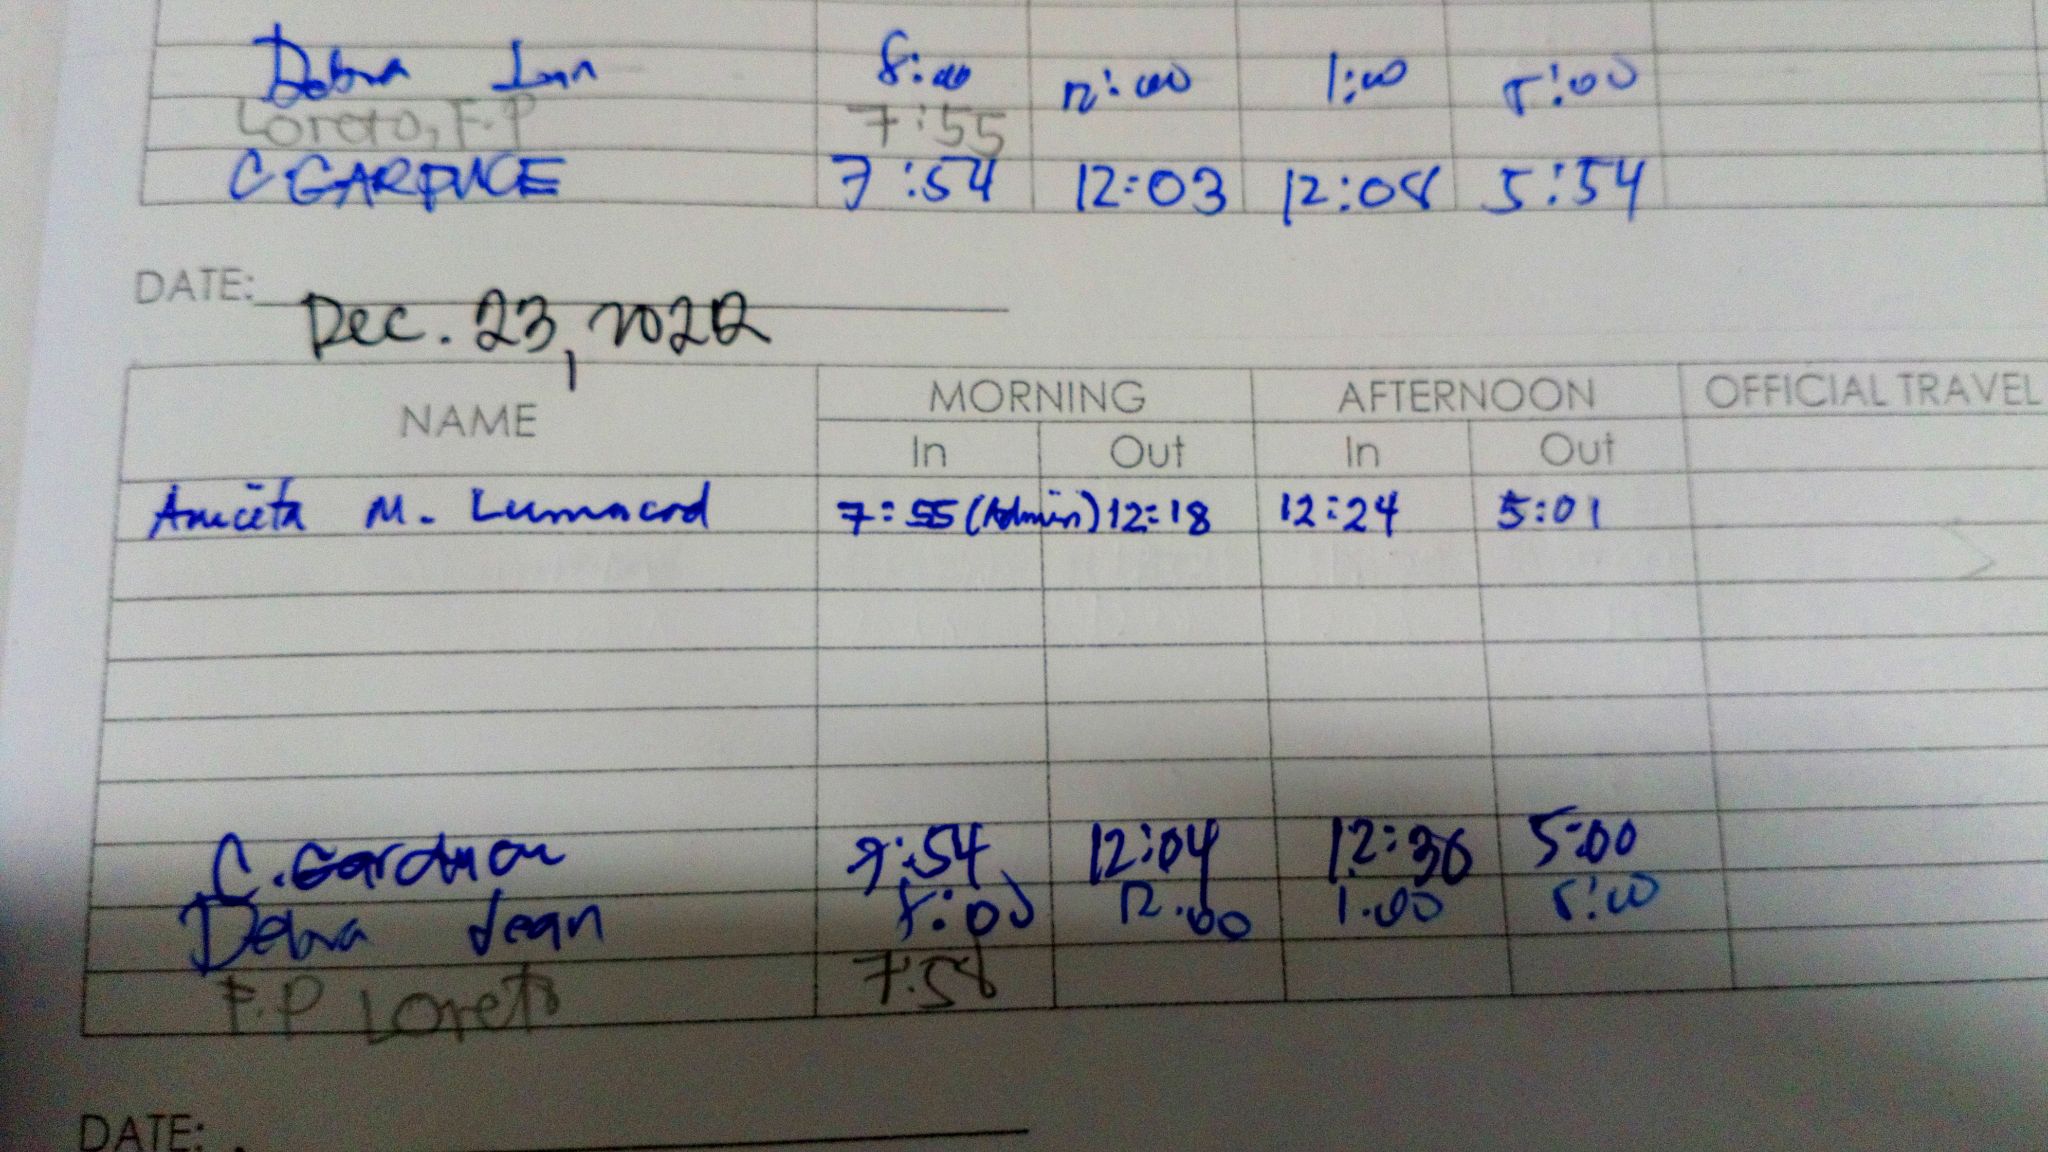 Debra Jean 8:00 12:00 1:00 5:00
Loreto, F.P 7:55
C 7:54 12:03 12:08 5:54
DATE: Dec. 23, 2022
NAME MORNING AFTERNOON OFFICIAL TRAVEL
In Out In Out
Aniceta M. Lumacad 7:55 (Admin) 12:18 12:24 5:01
C. 7:54 12:04 12:30 5:00
Debra Jean 8:00 12.00 1.00 5:00
F.P Loreto 7:58
DATE: